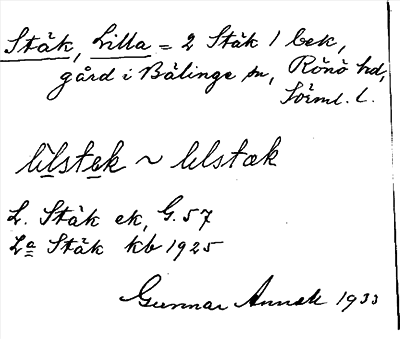 Stäk, Lilla = 2 Stäk / bek,
gård i Bälinge sn, Rönö hd,
Sörml. l.
lìlstek ~ lilstæk
L. Stäk ek, G. 57
La Stäk kb 1925
Gunnar 1933